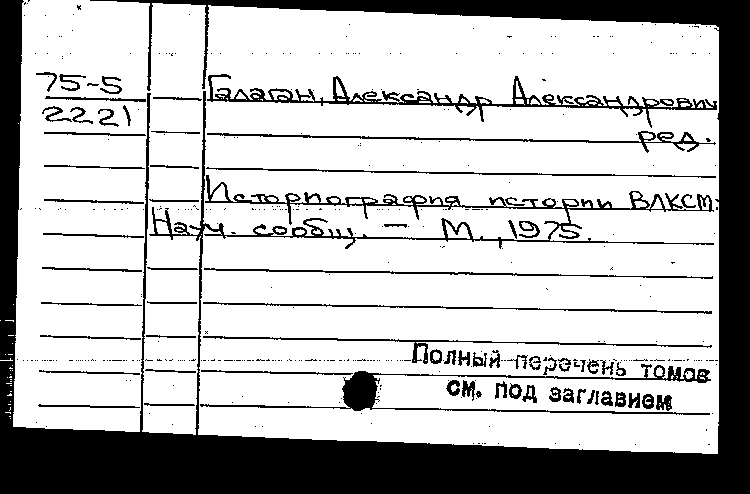 75-5
2221
Галаган, Александр Александрович
ред.
Историография истории ВЛКСМ:
Науч. сообщ. — М., 1975.
Полный перечень томов
см. под заглавием